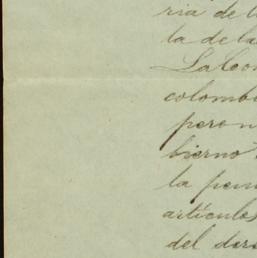 ria de l
la de la
La Com
colombi
pero n
bierno
la pen
artículos
del dere